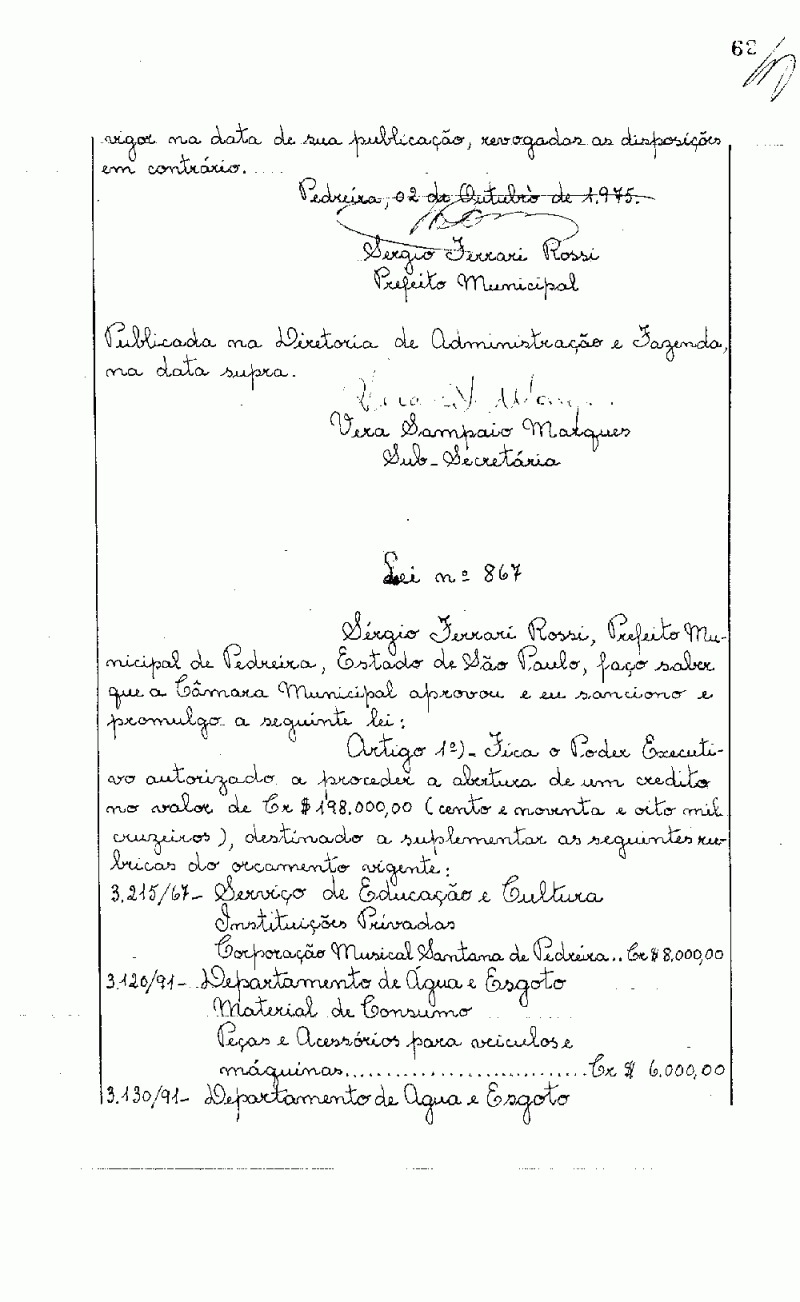 62
vigor na data de sua publicação, revogadas as disposições
em contrário.....
Pedreira, 02 de Outubro de 1.975.
Sérgio Ferrari Rossi
Prefeito Municipal
Publicada na Diretoria de Administração e Fazenda,
na data supra.
Vera Sampaio Marques
Sub-Secretária
Lei nº 867
Sérgio Ferrari Rossi, Prefeito Mu-
nicipal de Pedreira, Estado de São Paulo, faço saber
que a Câmara Municipal aprovou e eu sanciono e
promulgo a seguinte lei:
Artigo 1º)- Fica o Poder Executi-
vo autorizado a proceder a abertura de um credito
no valor de Cr$198.000,00 (cento e noventa e oito mil
cruzeiros), destinado a suplementar as seguintes ru-
bricas do orçamento vigente:
3.215/67- Serviço de Educação e Cultura
Instituições Privadas
Corporação Musical Santana de Pedreira.. Cr$8.000,00
3.120/91- Departamento de Água e Esgoto
Material de Consumo
Peças e Acessórios para veiculos e
máquinas............................Cr$ 6.000,00
3.130/91- Departamento de Agua e Esgoto